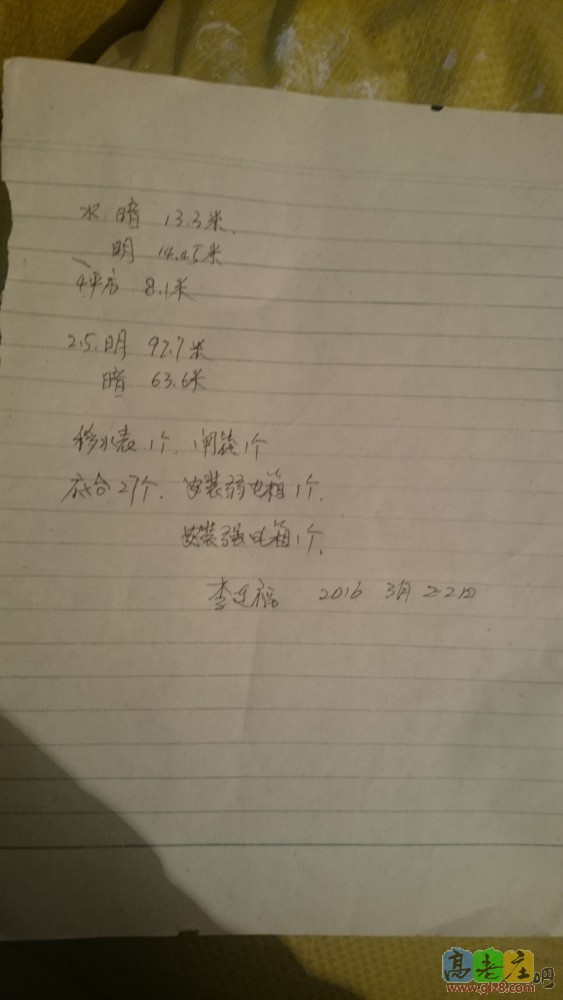 水.暗 13.3米.
明 14.45米
4平方 8.1米
2.5.明 97.7米
暗 63.6米
移水表1个. 1个
底合27个. 安装弱电箱1个.
安装强电箱1个.
李连福 2016 3月22日
高老庄吧
www.glz8.com